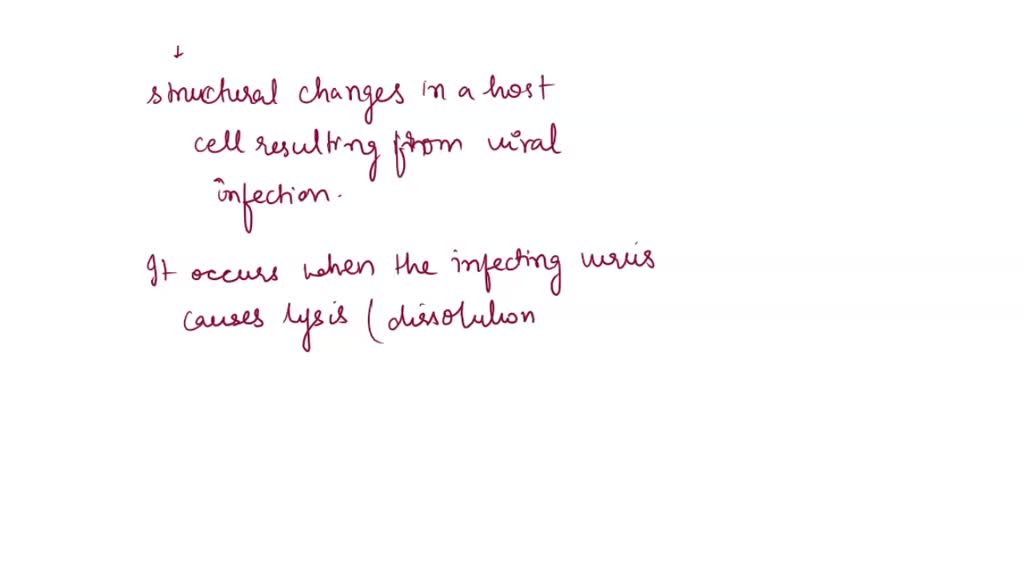 ↓
structural changes in a host
cell resulting from viral
infection.
It occurs when the infecting virus
causes lysis (dissolution